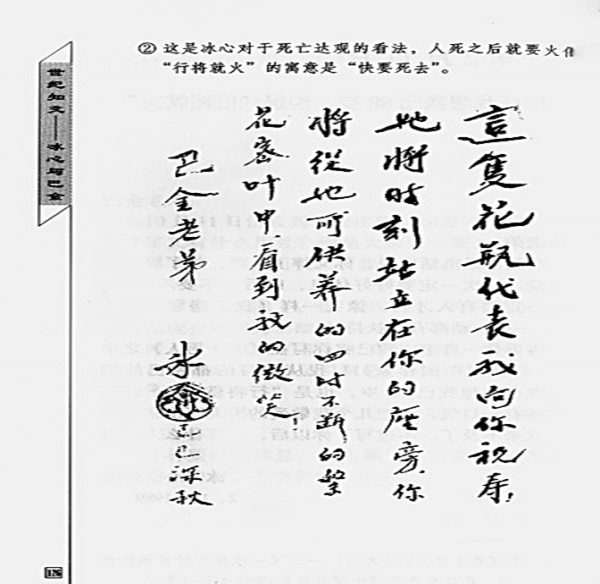 ② 这是冰心对于死亡达观的看法，人死之后就要火
“行将就火”的寓意是“快要死去”。
世纪知交——冰心与巴金
這隻花瓶代表我向你祝寿，
她將时刻站立在你的座旁，你
將從她可供养的四时不断的繁
花密叶中，看到我的微笑！
巴金老弟
冰心
己巳深秋